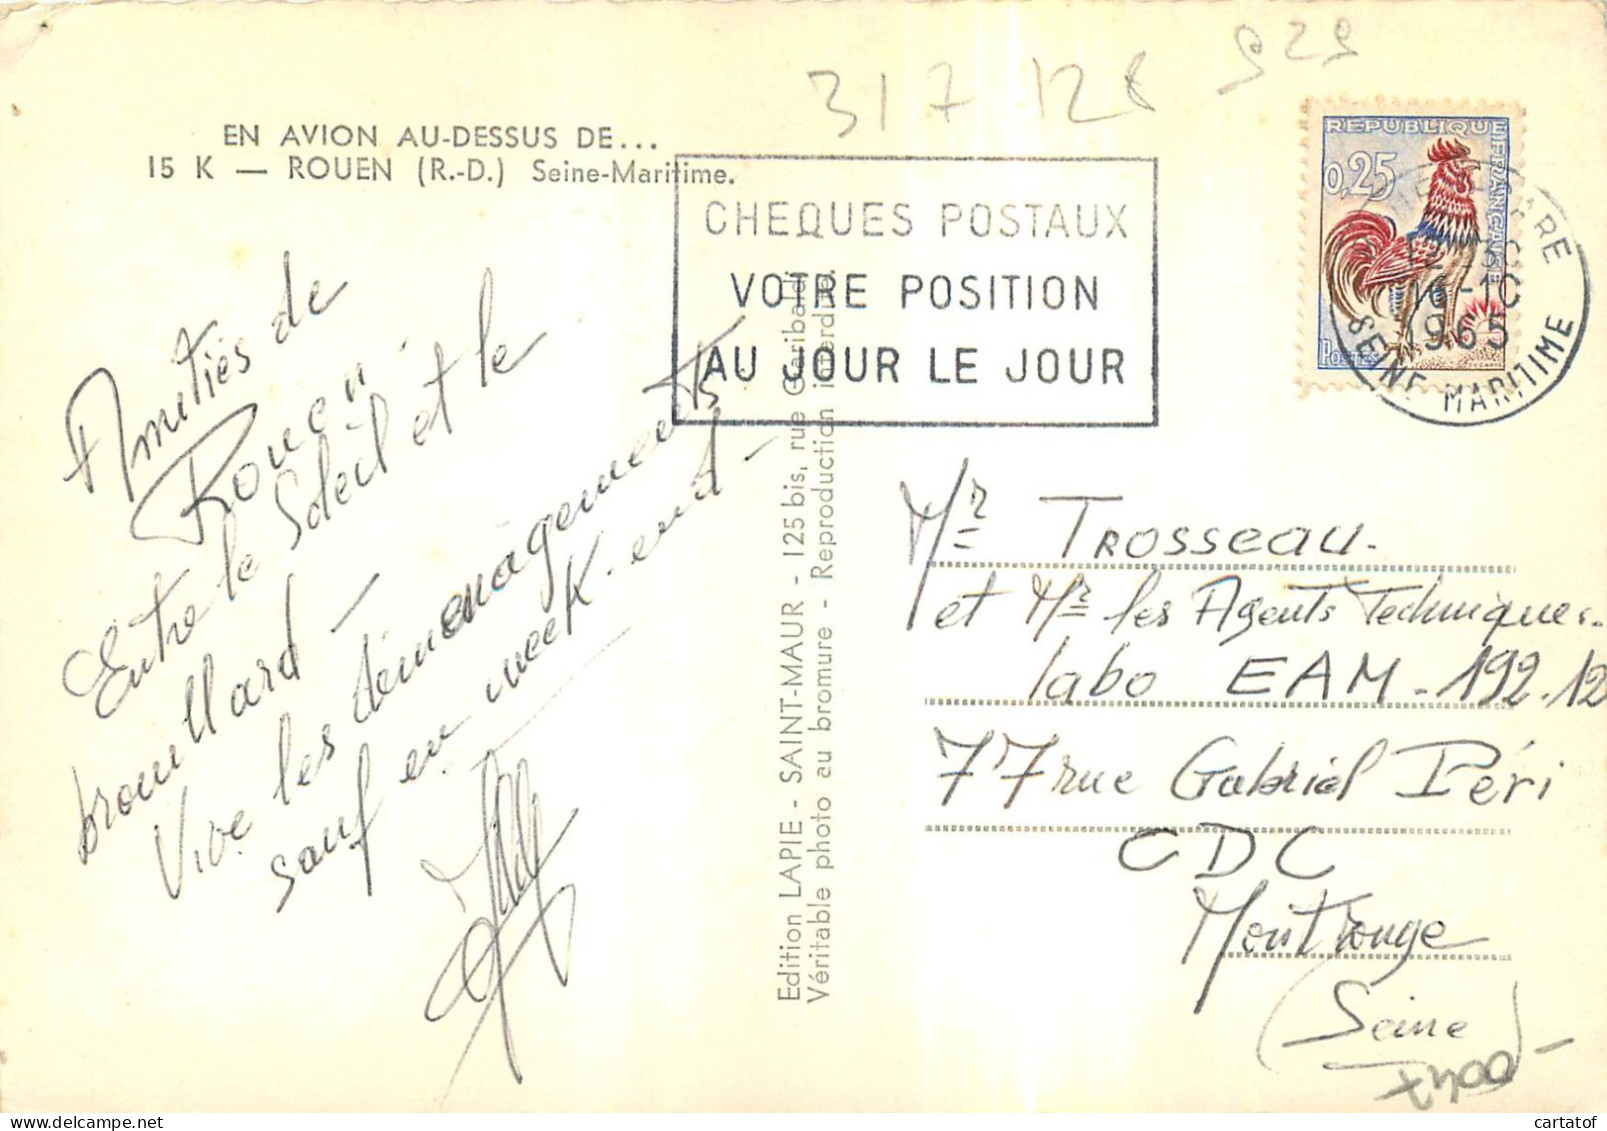 317 128 929
EN AVION AU-DESSUS DE...
15 K — ROUEN (R.-D.) Seine-Maritime.
CHEQUES POSTAUX
VOTRE POSITION
AU JOUR LE JOUR
REPUBLIQUE FRANÇAISE
0,25
POSTES
GARE
16-10
1965
SEINE MARITIME
Amitiés de
Rouen
Entre le Soleil et le
brouillard -
Vive les déménagements
sauf en week-end -
Edition LAPIE - SAINT-MAUR - 125 bis, rue Garibaldi
Véritable photo au bromure - Reproduction interdite.
Mr TROSSEAU.
et Mr les Agents Techniques.
labo EAM - 192.12
77 rue Gabriel Péri
CDC
Montrouge
(Seine) -
cartatof